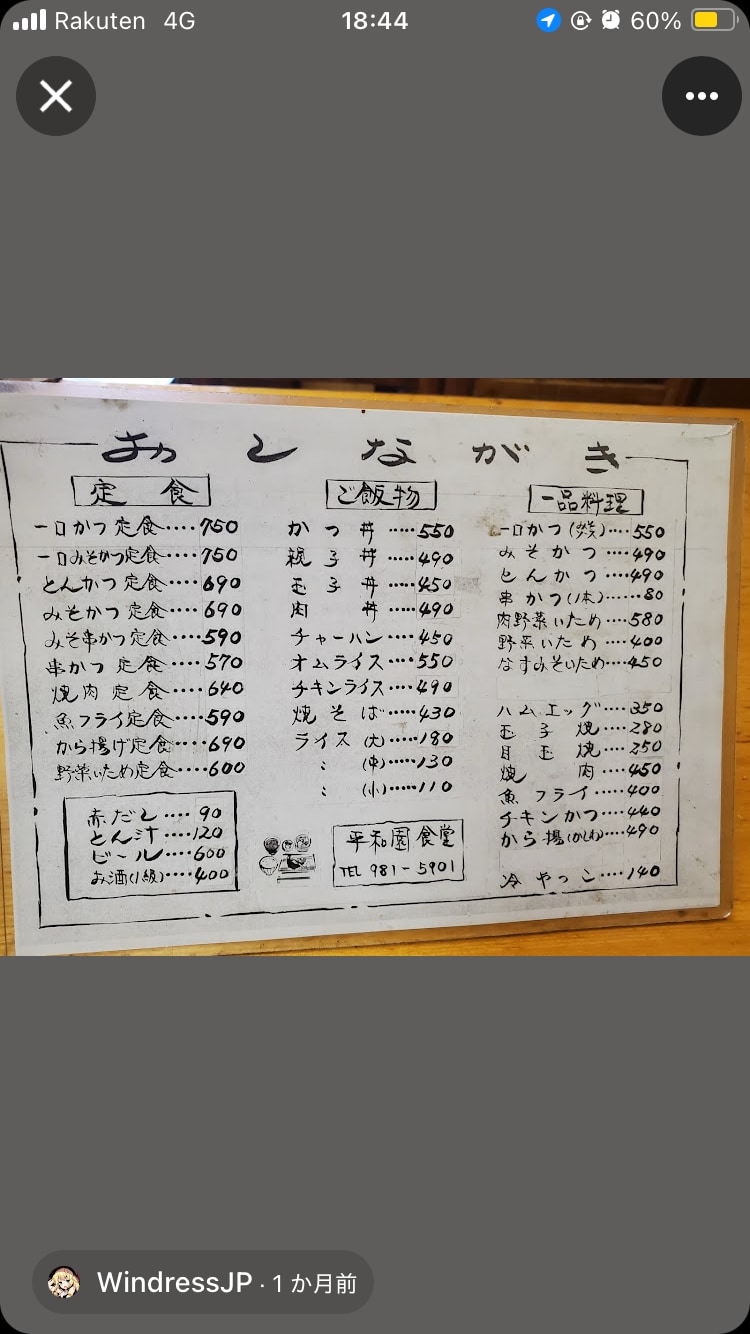 Rakuten 4G 18:44 60%
おしながき
定食
一口かつ定食････750
一口みそかつ定食････750
とんかつ定食････690
みそかつ定食････690
みそ串かつ定食････590
串かつ定食････570
焼肉定食････640
魚フライ定食････590
から揚げ定食････690
野菜いため定食････600
赤だし････90
とん汁････120
ビール････600
お酒(1級)････400
ご飯物
かつ丼･････550
親子丼････490
玉子丼････450
肉丼････490
チャーハン････450
オムライス････550
チキンライス････490
焼そば････430
ライス(大)･････180
〃(中)･････130
〃(小)･････110
平和園食堂
TEL 981-5901
一品料理
一口かつ････550
みそかつ････490
とんかつ････490
串かつ(1本)･････80
肉野菜いため････580
野菜いため････400
なすみそいため････450
ハムエッグ････350
玉子焼････280
目玉焼････250
焼肉････450
魚フライ････400
チキンかつ････440
から揚(かしわ)････490
冷やっこ････140
WindressJP · 1 か月前